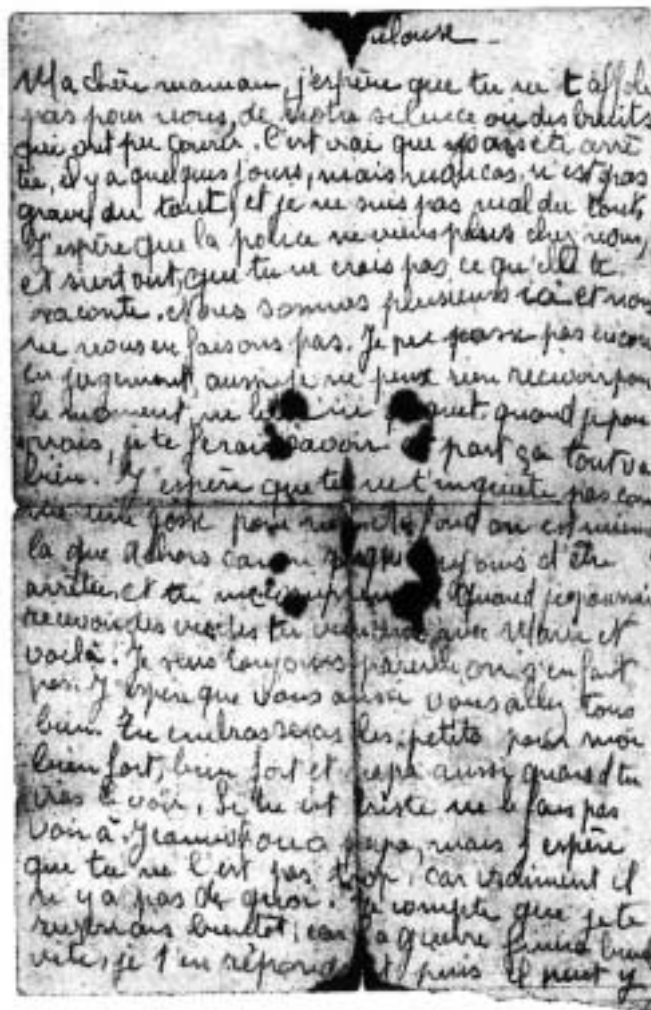 ulouse -
Ma chère maman, j'espère que tu ne t'affole
pas pour nous, de notre silence ou des bruits
qui ont pu courir. C'est vrai que arrê
tée, il y a quelques jours, mais mon cas n'est pas
grave du tout, et je ne suis pas mal du tout.
J'espère que la police ne viens chez nous,
et surtout, que tu ne crois pas ce qu'elle te
raconte. Nous sommes plusieurs ici et nous
ne nous en faisons pas. Je ne passe pas encore
en jugement, aussi je ne peux rien recevoir pour
le moment, ni le ni quet. quand je pou
rrais, je te ferais savoir part ça tout va
bien. J'espère que tu ne t'inquiète pas com
me une gosse pour fond on est mieux
là que dehors car on jours d'être
arrêtée, et tu me Quand je pourrais
recevoir des visites tu avec Marie et
voilà. Je suis toujours pareille on s'en fait
pas. J'espère que vous aussi vous allez tous
bien. Tu embrasseras les petits pour moi
bien fort, bien fort et papa aussi quand tu
iras le voir. Si tu est triste ne le fais pas
voir à ou a papa, mais j'espère
que tu ne l'est pas trop, car vraiment il
n'y a pas de quoi. Je compte que je te
reverrais bientôt, car la guerre finira bien
vite, je t'en répond et puis il peut y